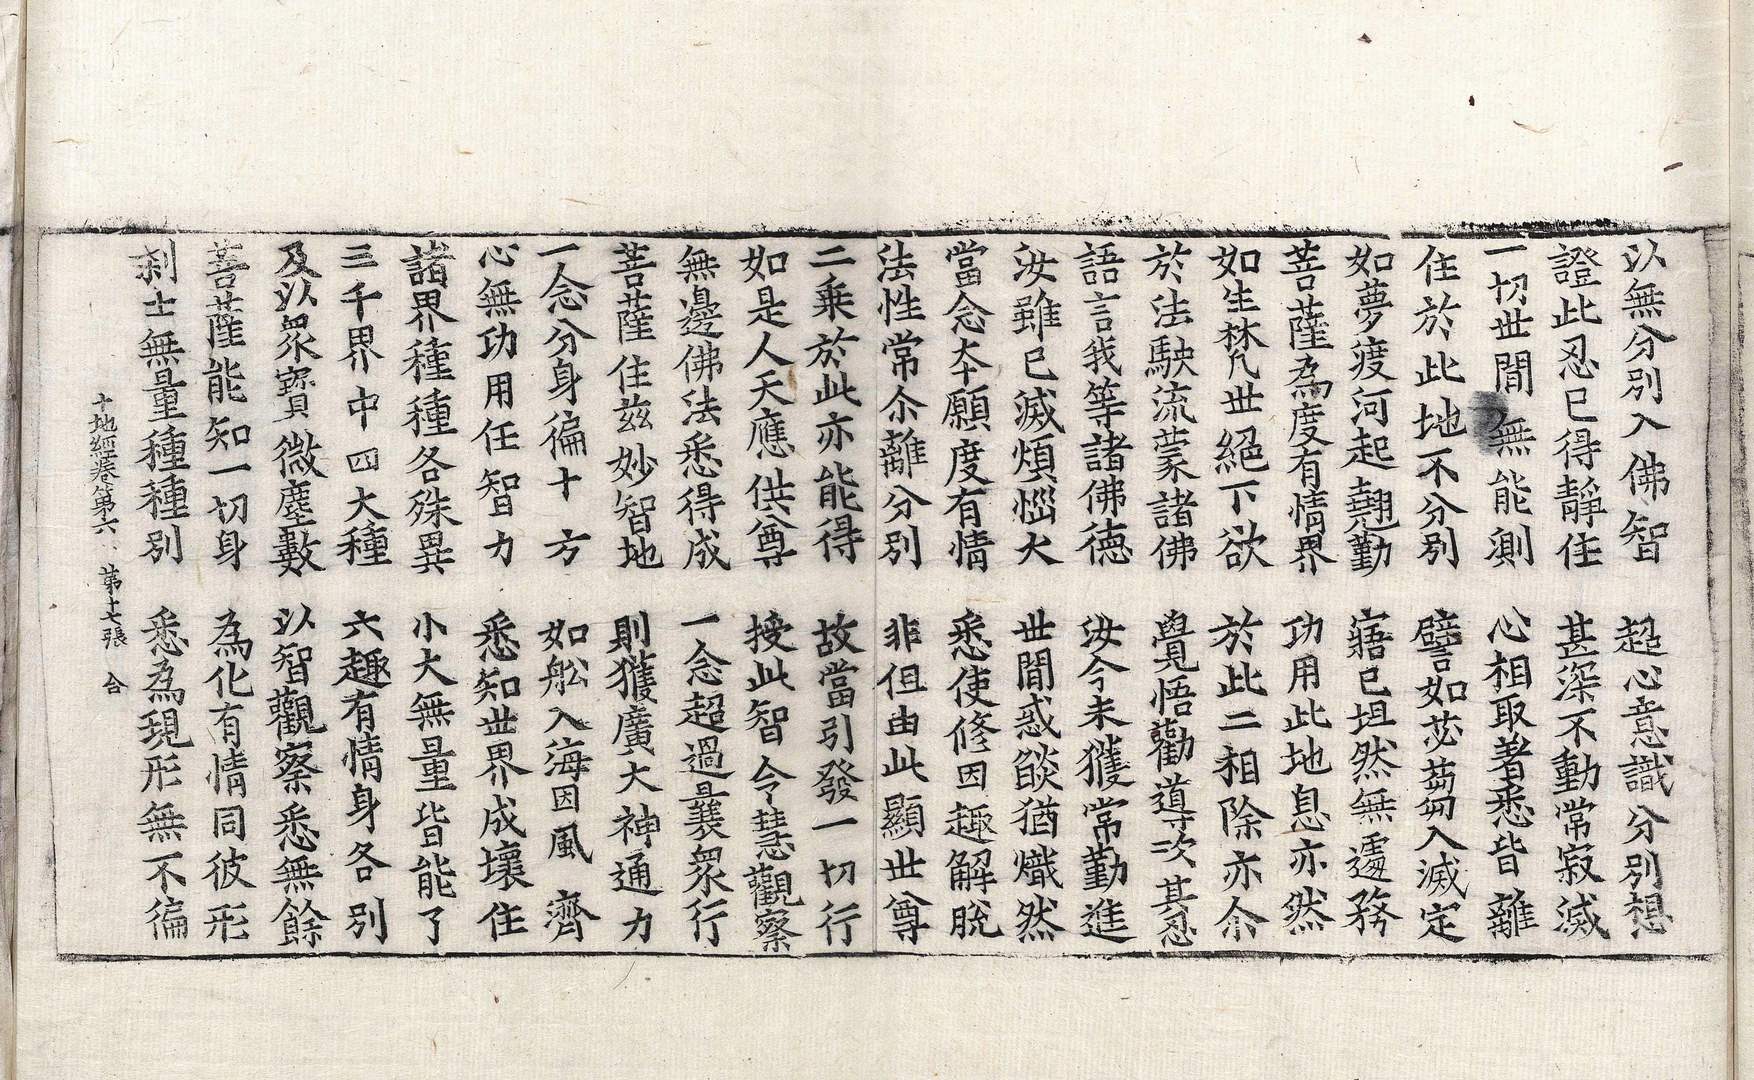 以無分別入佛智　超心意識分別想
證此忍已得靜住　甚深不動常寂滅
一切世間無能測　心相取著悉皆離
住於此地不分別　譬如苾蒭入滅定
如夢渡河起翹勤　寤已坦然無遽務
菩薩為度有情界　功用此地息亦然
如生梵世絕下欲　於此二相除亦尒
於法駛流蒙諸佛　覺悟勸導次其忍
語言我等諸佛德　汝今未獲常勤進
汝雖已滅煩惱火　世間惑燄猶熾然
當念本願度有情　悉使修因趣解脫
法性常尒離分別　非但由此顯世尊
二乘於此亦能得　故當引發一切行
如是人天應供尊　授此智令慧觀察
無邊佛法悉得成　一念超過曩衆行
菩薩住茲妙智地　則獲廣大神通力
一念分身徧十方　如舩入海因風濟
心無功用任智力　悉知世界成壞住
諸界種種各殊異　小大無量皆能了
三千界中四大種　六趣有情身各別
及以衆寶微塵數　以智觀察悉無餘
菩薩能知一切身　為化有情同彼形
刹土無量種種別　悉為現形無不徧
十地經卷第六　第十七張　合